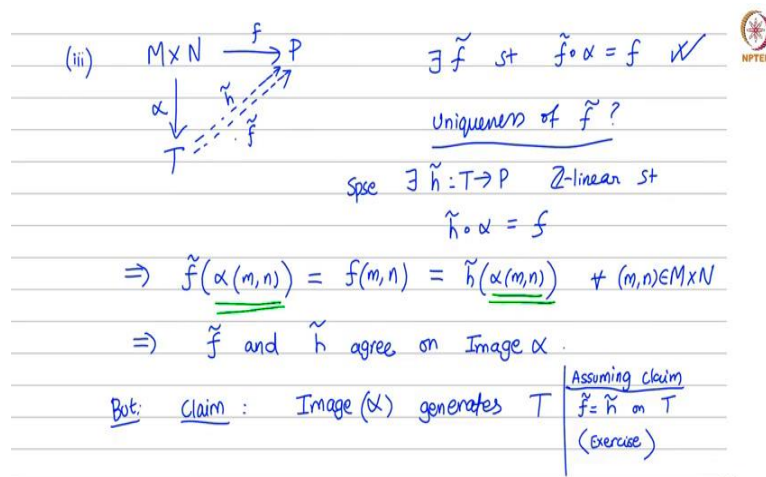 (iii) M×N f→ P ∃ f̃ st f̃∘α = f
NPTEL
α h̃ f̃
T
Uniqueness of f̃ ?
Spse ∃ h̃ : T→P ℤ-linear st
h̃∘α = f
⇒ f̃(α(m,n)) = f(m,n) = h̃(α(m,n)) ∀ (m,n)∈M×N
⇒ f̃ and h̃ agree on Image α.
But: Claim : Image(α) generates T
Assuming claim
f̃ = h̃ on T
(Exercise)